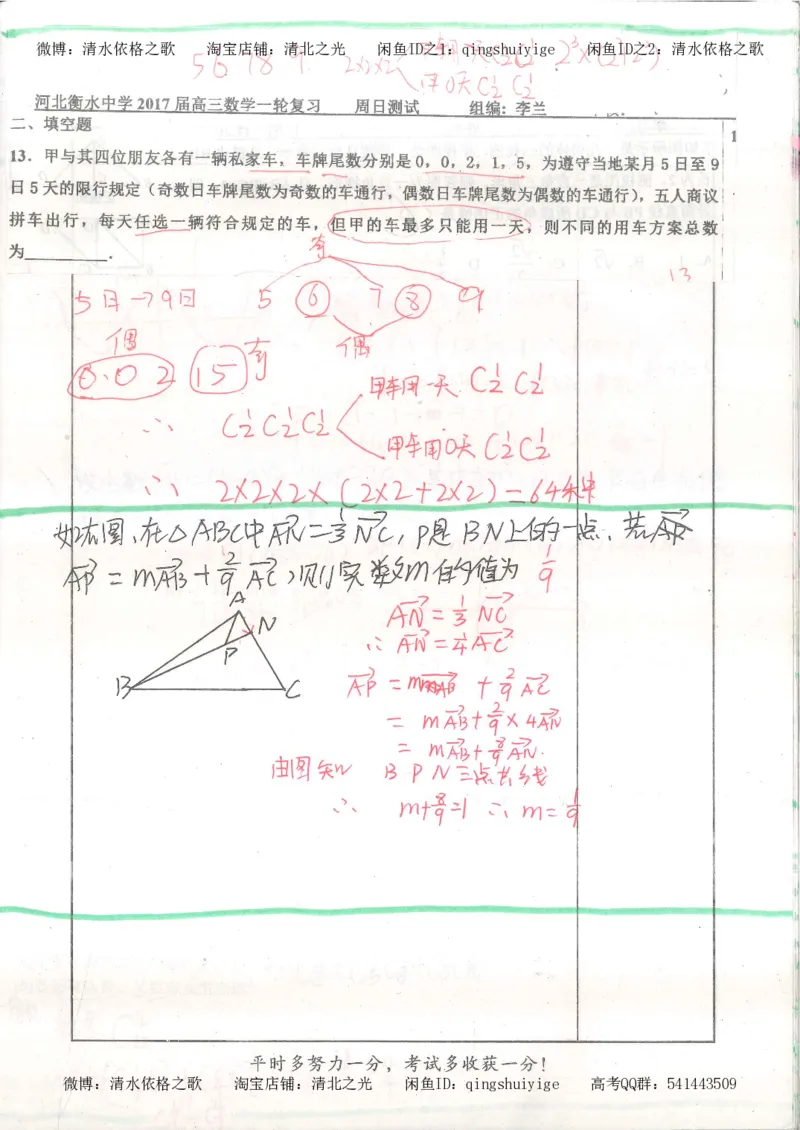 微博：清水依格之歌 淘宝店铺：清北之光 闲鱼ID之1：qingshuiyige 闲鱼ID之2：清水依格之歌
5 6 7 8 9 2×2×2
甲0天 C½ C½
河北衡水中学 2017 届高三数学一轮复习 周日测试 组编：李兰
二、填空题
13．甲与其四位朋友各有一辆私家车，车牌尾数分别是 0，0，2，1，5，为遵守当地某月 5 日至 9
日 5 天的限行规定（奇数日车牌尾数为奇数的车通行，偶数日车牌尾数为偶数的车通行），五人商议
拼车出行，每天任选一辆符合规定的车，但甲的车最多只能用一天，则不同的用车方案总数
为 ．
奇
13
5日→9日 5 6 7 8 9
偶 奇 偶
0.0 2 15
甲车用一天 C₂¹ C₂¹
∴ C₂¹ C₂¹ C₂¹
甲车用0天 C₂¹ C₂¹
∴ 2×2×2×(2×2+2×2)=64种
如右图，在△ABC中AN=1/3 NC，P是BN上的一点，若AP
AP = mAB + 2/9 AC，则实数m的值为 1/9
A
N
P
B C
AN = 1/3 NC
∴ AN = 1/4 AC
AP = mAB + 2/9 AC
= mAB + 2/9 × 4AN
= mAB + 8/9 AN.
由图知 B P N 三点共线
∴ m+8/9=1 ∴ m=1/9
平时多努力一分，考试多收获一分！
微博：清水依格之歌 淘宝店铺：清北之光 闲鱼ID：qingshuiyige 高考QQ群：541443509